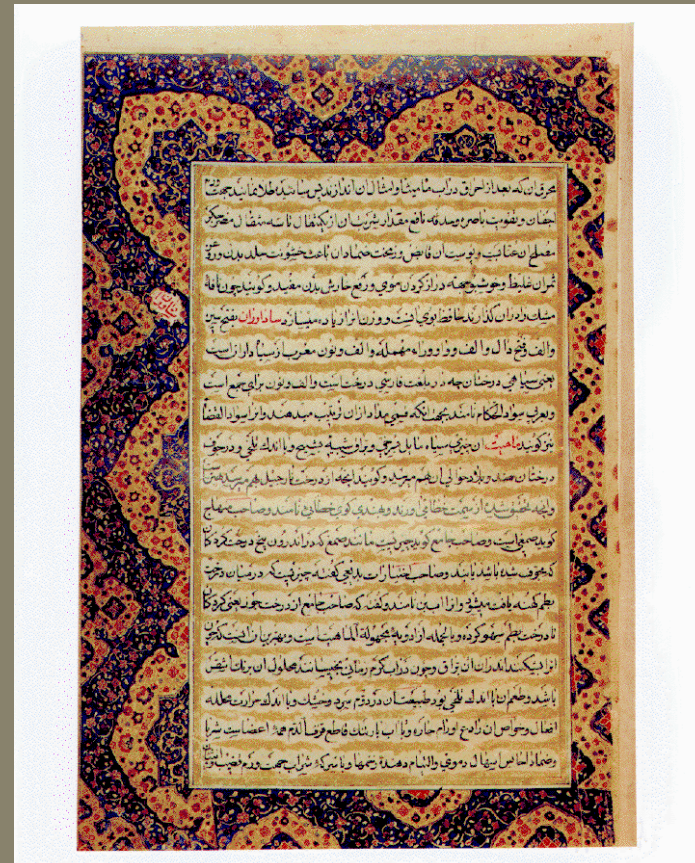 محرق آن که بعد از احراق در آب مامیثا و امثال آن انداز ند پس سائیده طلا نمایند جهت
اجفان و تقویت باصره و سدفه نافع مقدار شربت آن از یکمثقال تا سه مثقال مضر
مصلح آن عناب و پوست آن قابض و ریخت ضماد آن باعث خشونت جلد بدن و روغن
ثمر آن غلیظ و خوشبو جهة دراز کردن موی و رفع خارش بدن مفید و کویند چون نافهٔ
مشک را در آن کذارند حافظ بوی آنست و وزن آنرا زیاده میسازد ساداوران بفتح سین
والف و فتح دال و الف و واو و راء مهمله و الف و نون معرب از سیاه داران است
یعنی سیاهی درختان چه در بلغت فارسی درخت است و الف و نون برای جمع است
و بعربی سواد الحکام نامند بجهة آنکه قسمی مداد از آن ترتیب میدهند و آنرا سواد القضاة
نیز کویند ماهیت آن چیزی سیاه مایل بسرخی و براق شبیه بشبح و با اندک تلخی و در جوف
درختان هند و بلاد حوالی آن بهم میرسد و کویند آنچه از درخت نارجیل بهم میرسد بهتر
و آنچه تحقیق شده از سمت خطائی آورند و بهندی کوی خطائی نامند و صاحب منهاج
کوید صمغی است و صاحب جامع کوید چیزیست مانند صمغ که در اندرون بیخ درخت کردکان
که مجوف شده باشد یابند و صاحب اختیارات بدیعی کفته چیزیست که در میان درخت
بطم کهنه یافت میشود و از آب بن نامند و کفته که صاحب جامع از درخت جوز یعنی کردکان
تا درخت بطم سهو کرده و بالجمله از ادویهٔ مجهولة الماهیة است و بهترین آن آنست که چون
آنرا بشکنند اندرون آن براق و چون در آب کرم زمانی بخیسانند محلول آن برنک
باشد و طعم آن با اندک تلخی بود طبیعت آن در دوم سرد و خشک و با اندک حرارت محلله
افعال و خواص آن رادع اورام حاره و با آب بارتنک قاطع نزف الدم همهٔ اعضاست شربا
وضمادا حابس اسهال دموی و التیام دهندهٔ زخمها و با سرکه و شراب جهت ورم قضیب و